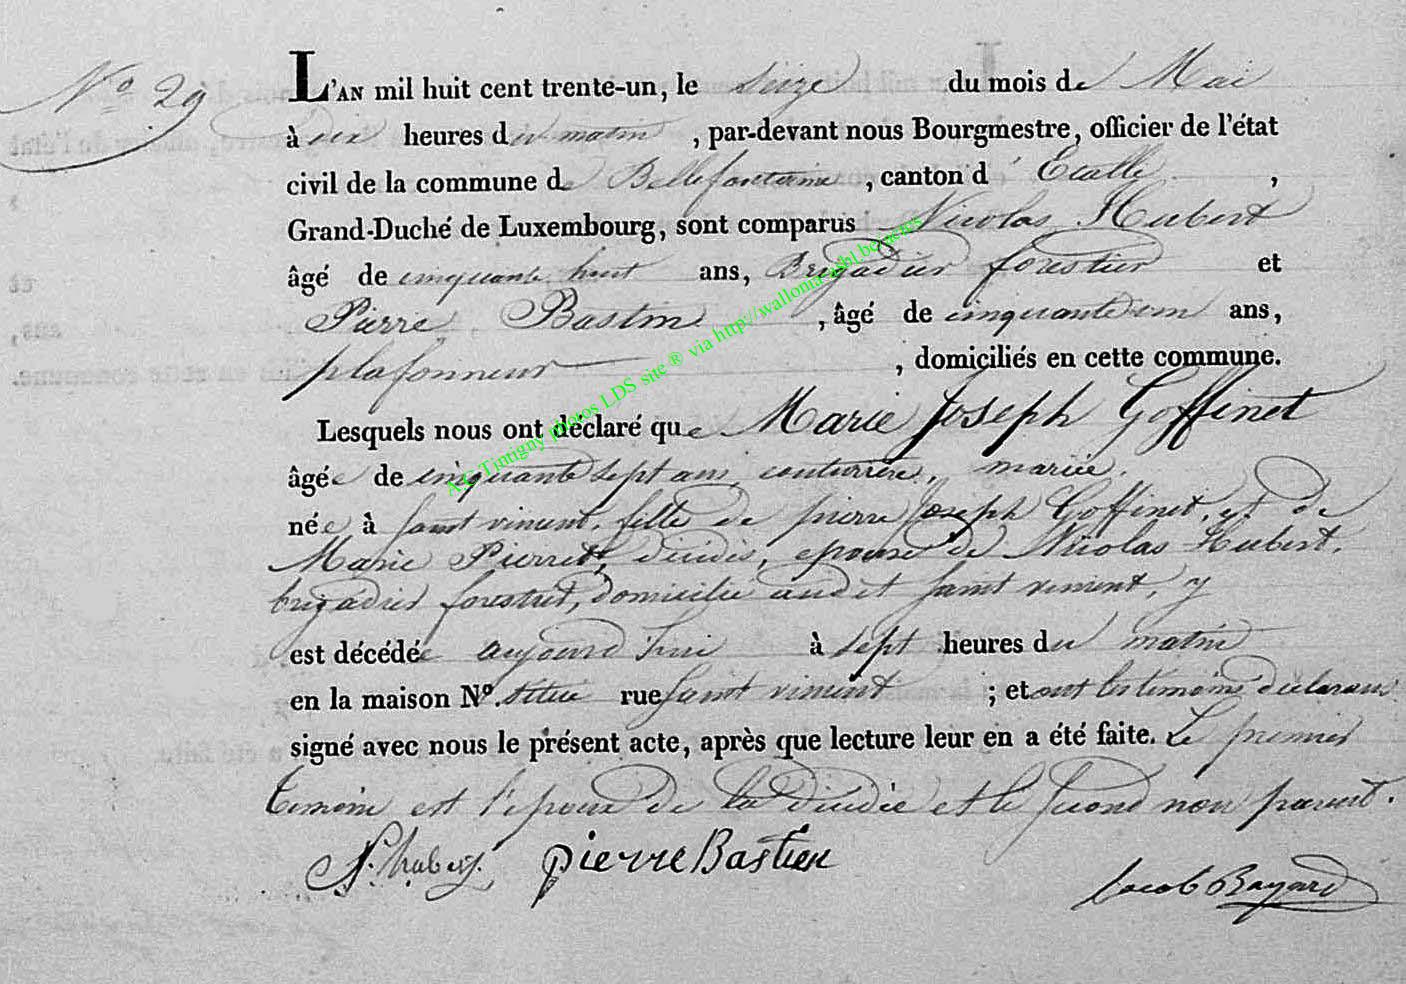 N° 29
L'AN mil huit cent trente-un, le seize du mois de Mai
à dix heures du matin, par-devant nous Bourgmestre, officier de l'état
civil de la commune de Bellefontaine, canton d' Etalle,
Grand-Duché de Luxembourg, sont comparus Nicolas Hubert
âgé de cinquante huit ans, Brigadier forestier et
Pierre Bastin, âgé de cinquante un ans,
plafonneur, domiciliés en cette commune.
Lesquels nous ont déclaré que Marie Joseph Goffinet
âgée de cinquante sept ans, couturière, mariée.
née à Saint vincent, fille de pierre Joseph Goffinet, et de
Marie Pierret, décédés, epouse de Nicolas Hubert.
brigadier forestier, domicilié audit Saint vincent, y
est décédée aujourd'hui à sept heures du matin
en la maison N°. située rue Saint vincent ; et ont les témoins déclarans
signé avec nous le présent acte, après que lecture leur en a été faite. Le premier
temoin est l'epoux de la décédée et le second non parent.
N. hubert. pierre Bastien
Jacob Bayard
A.G Tintigny photos LDS site ® via http://wallonia-asbl.be/actes